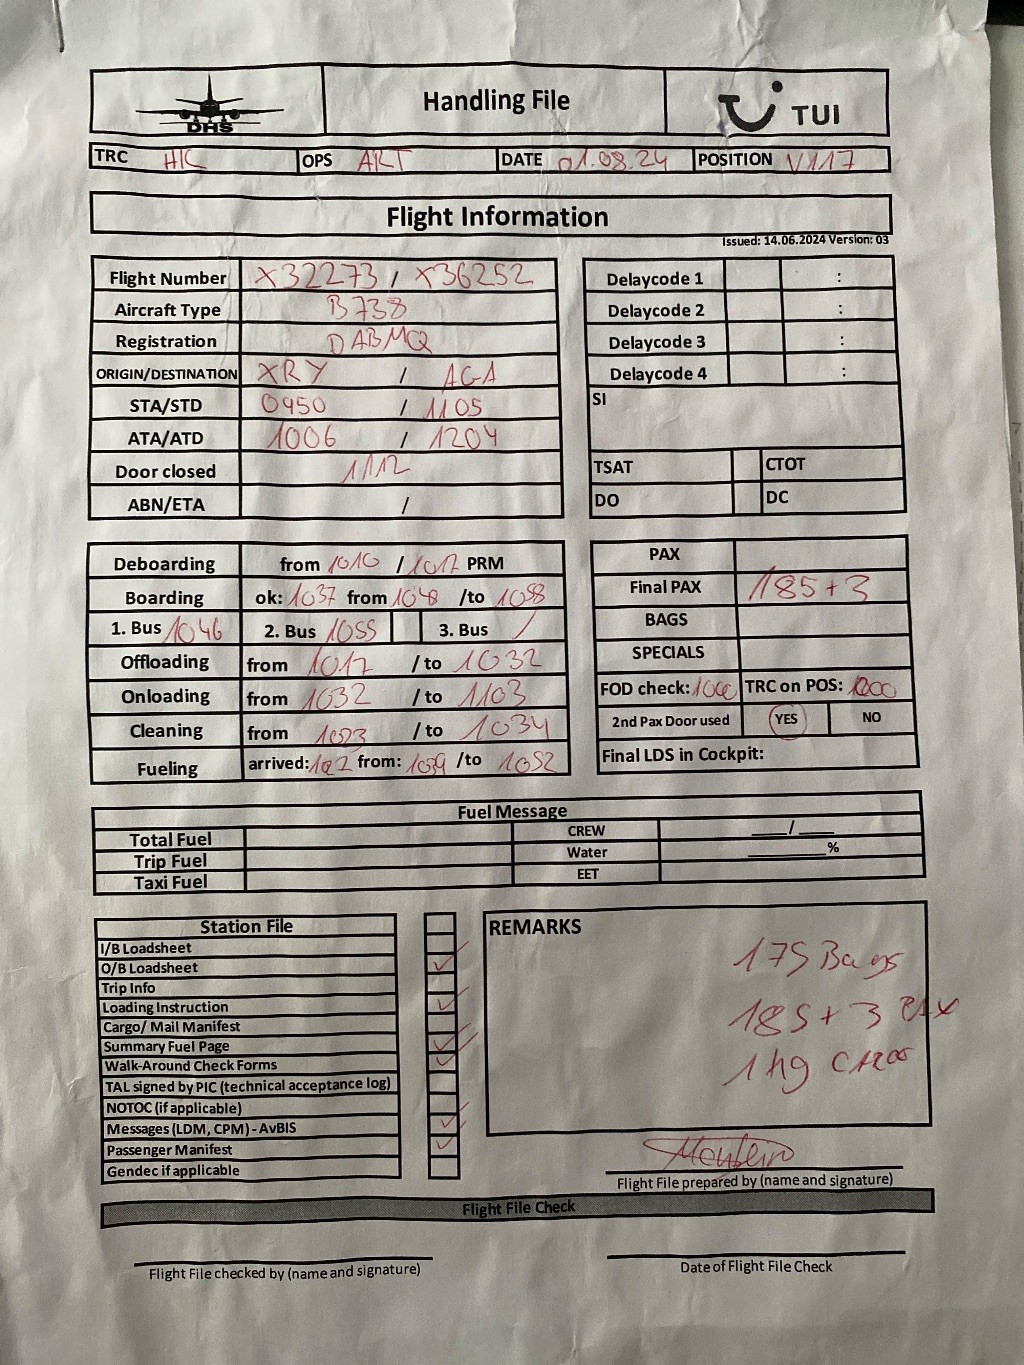 DHS
Handling File
TUI
TRC HK OPS ART DATE 01.08.24 POSITION V117
Flight Information
Issued: 14.06.2024 Version: 03
Flight Number X32273 / X36252
Aircraft Type B738
Registration DABMQ
ORIGIN/DESTINATION XRY / AGA
STA/STD 0950 / 1105
ATA/ATD 1006 / 1204
Door closed 1112
ABN/ETA /
Delaycode 1 :
Delaycode 2 :
Delaycode 3 :
Delaycode 4 :
SI
TSAT CTOT
DO DC
Deboarding from 1010 / 1017 PRM
Boarding ok: 1037 from 1048 /to 1058
1. Bus 1046 2. Bus 1055 3. Bus /
Offloading from 1017 /to 1032
Onloading from 1032 /to 1103
Cleaning from 1023 /to 1034
Fueling arrived: from: 1039 /to 1052
PAX
Final PAX 185+3
BAGS
SPECIALS
FOD check: TRC on POS:
2nd Pax Door used YES NO
Final LDS in Cockpit:
Fuel Message
Total Fuel CREW ___/___
Trip Fuel Water ______%
Taxi Fuel EET
Station File
I/B Loadsheet
O/B Loadsheet ✓
Trip Info
Loading Instruction ✓
Cargo/ Mail Manifest
Summary Fuel Page ✓
Walk-Around Check Forms ✓
TAL signed by PIC (technical acceptance log)
NOTOC (if applicable)
Messages (LDM, CPM) - AvBIS ✓
Passenger Manifest ✓
Gendec if applicable
REMARKS
175 Bags
185+3 PAX
1 kg
Monteiro
Flight File prepared by (name and signature)
Flight File Check
Flight File checked by (name and signature)
Date of Flight File Check